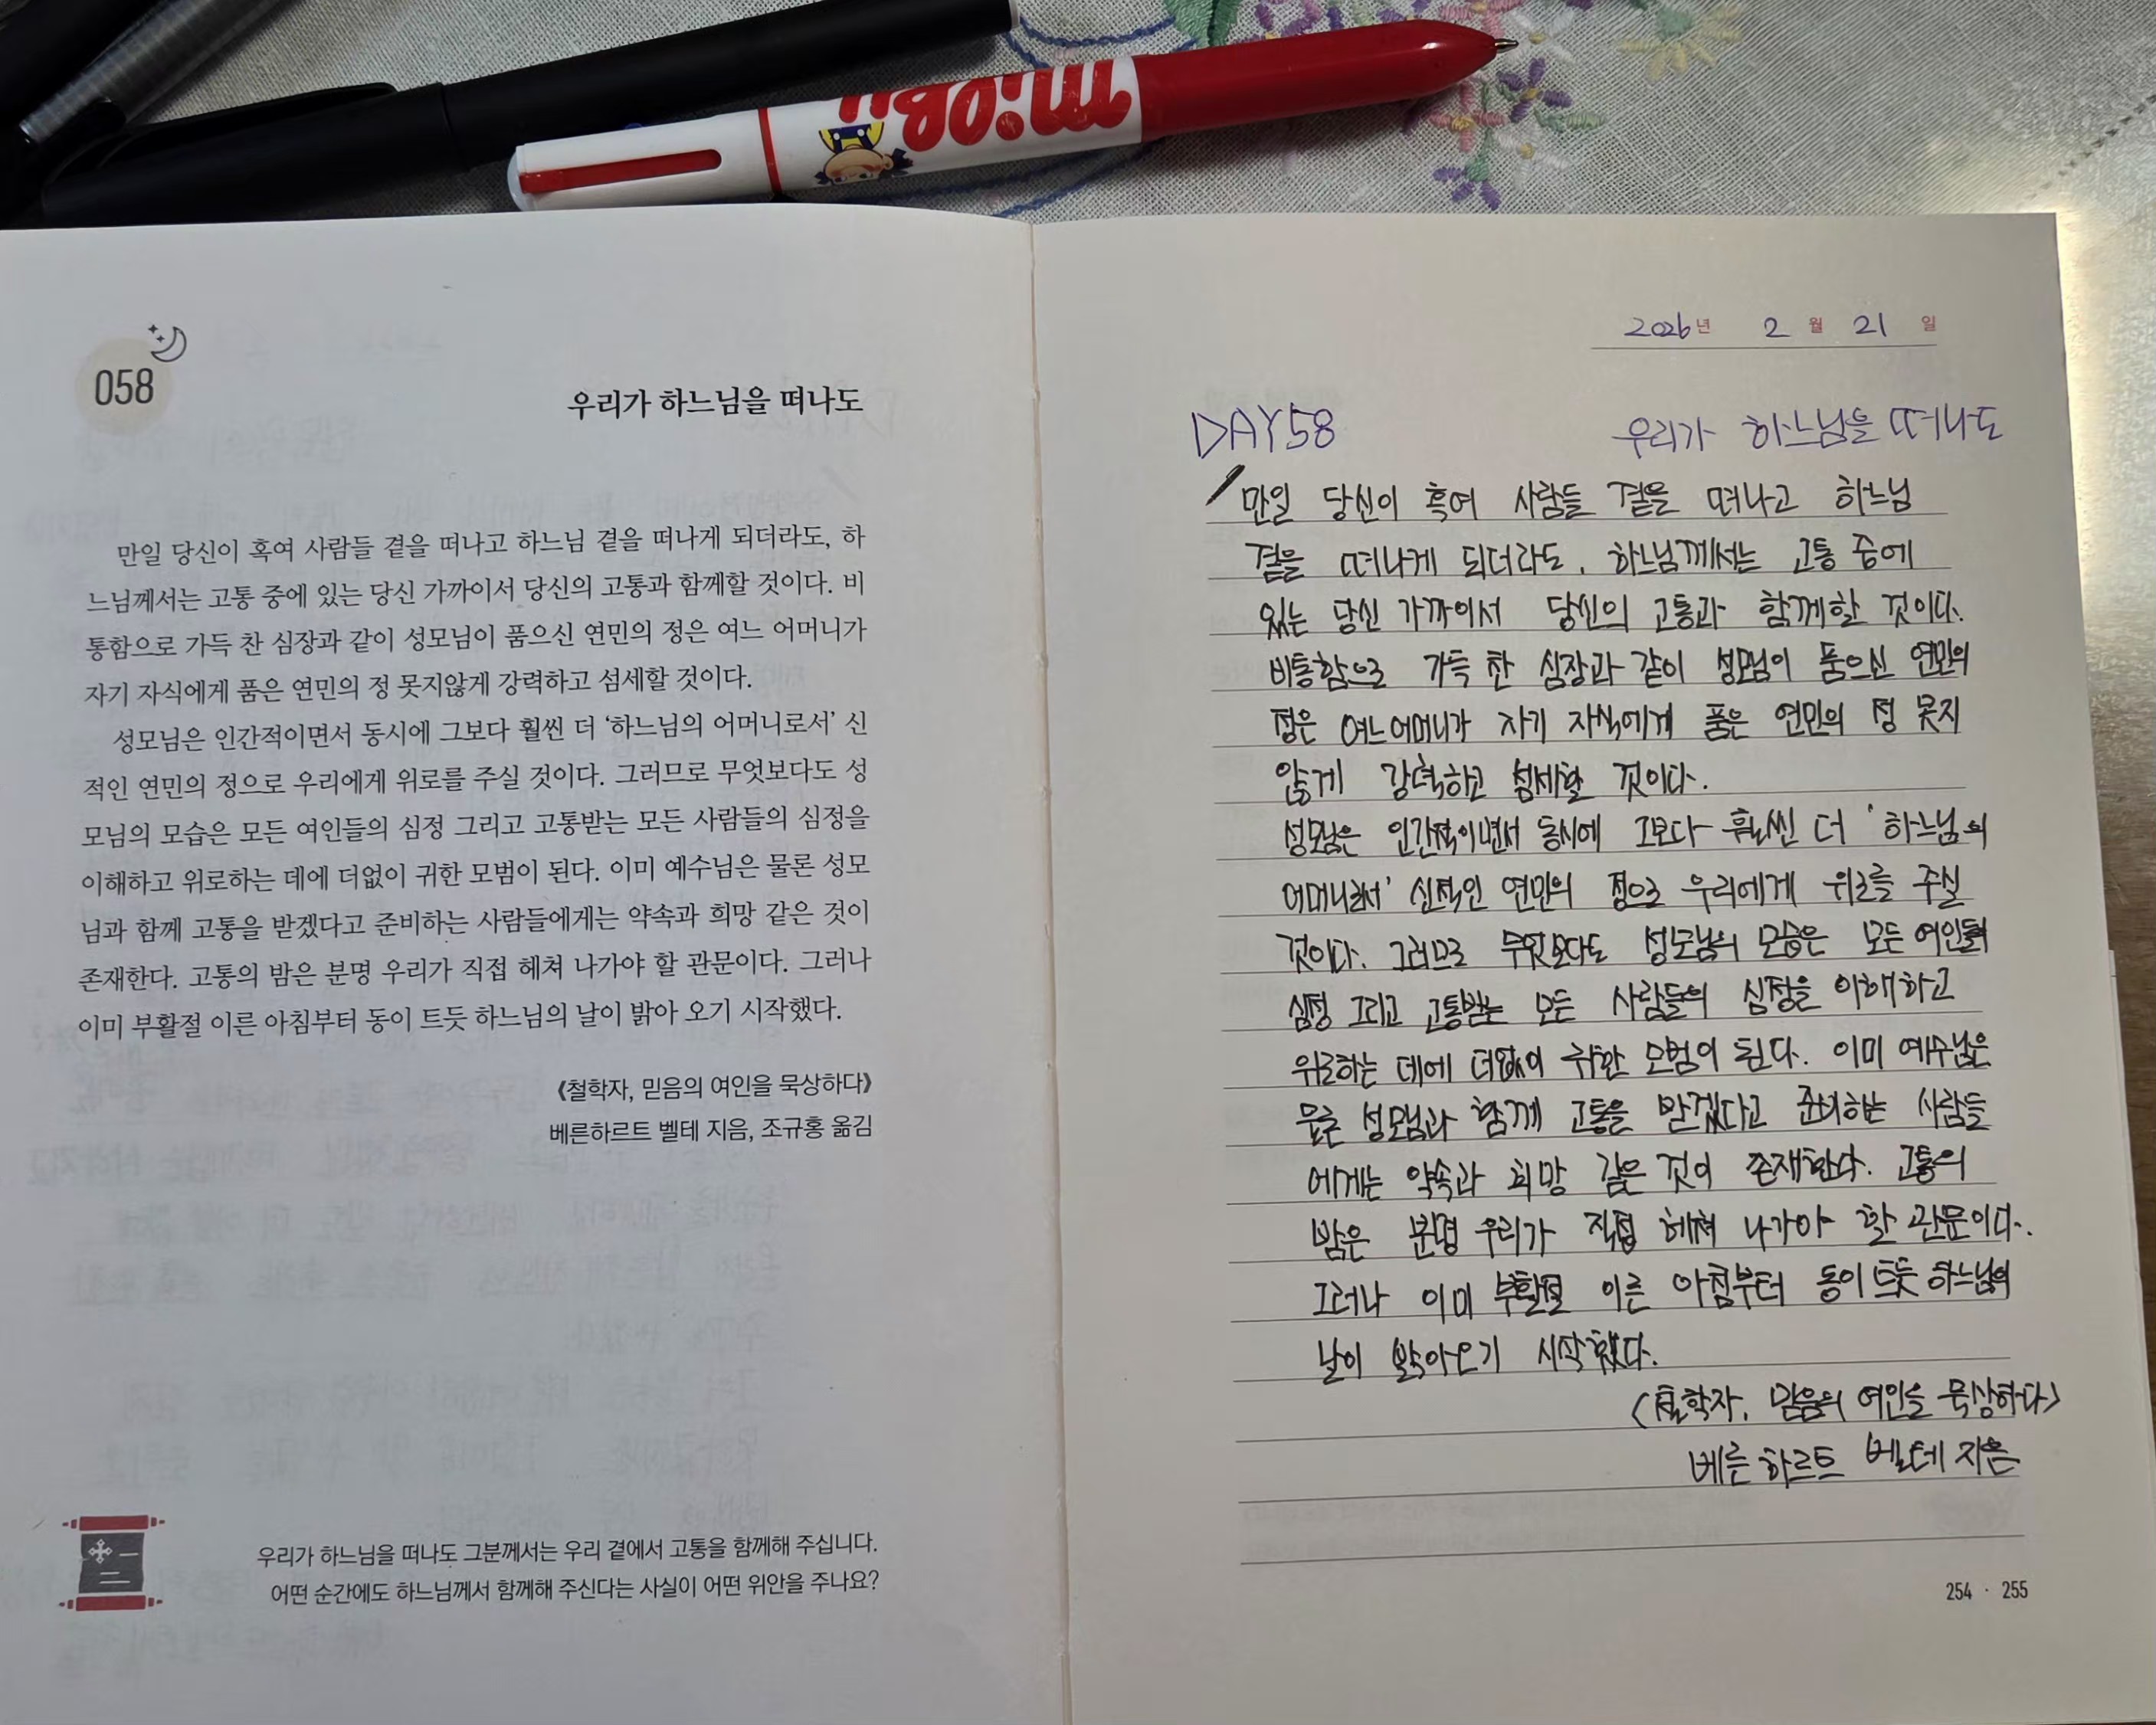 058
우리가 하느님을 떠나도
만일 당신이 혹여 사람들 곁을 떠나고 하느님 곁을 떠나게 되더라도, 하
느님께서는 고통 중에 있는 당신 가까이서 당신의 고통과 함께할 것이다. 비
통함으로 가득 찬 심장과 같이 성모님이 품으신 연민의 정은 여느 어머니가
자기 자식에게 품은 연민의 정 못지않게 강력하고 섬세할 것이다.
성모님은 인간적이면서 동시에 그보다 훨씬 더 ‘하느님의 어머니로서’ 신
적인 연민의 정으로 우리에게 위로를 주실 것이다. 그러므로 무엇보다도 성
모님의 모습은 모든 여인들의 심정 그리고 고통받는 모든 사람들의 심정을
이해하고 위로하는 데에 더없이 귀한 모범이 된다. 이미 예수님은 물론 성모
님과 함께 고통을 받겠다고 준비하는 사람들에게는 약속과 희망 같은 것이
존재한다. 고통의 밤은 분명 우리가 직접 헤쳐 나가야 할 관문이다. 그러나
이미 부활절 이른 아침부터 동이 트듯 하느님의 날이 밝아 오기 시작했다.
《철학자, 믿음의 여인을 묵상하다》
베른하르트 벨테 지음, 조규홍 옮김
우리가 하느님을 떠나도 그분께서는 우리 곁에서 고통을 함께해 주십니다.
어떤 순간에도 하느님께서 함께해 주신다는 사실이 어떤 위안을 주나요?
2026년 2월 21일
DAY58 우리가 하느님을 떠나도
만일 당신이 혹여 사람들 곁을 떠나고 하느님
곁을 떠나게 되더라도, 하느님께서는 고통 중에
있는 당신 가까이서 당신의 고통과 함께할 것이다.
비통함으로 가득 찬 심장과 같이 성모님이 품으신 연민의
정은 여느 어머니가 자기 자식에게 품은 연민의 정 못지
않게 강력하고 섬세할 것이다.
성모님은 인간적이면서 동시에 그보다 훨씬 더 '하느님의
어머니로서' 신적인 연민의 정으로 우리에게 위로를 주실
것이다. 그러므로 무엇보다도 성모님의 모습은 모든 여인들의
심정 그리고 고통받는 모든 사람들의 심정을 이해하고
위로하는 데에 더없이 귀한 모범이 된다. 이미 예수님은
물론 성모님과 함께 고통을 받겠다고 준비하는 사람들
에게는 약속과 희망 같은 것이 존재한다. 고통의
밤은 분명 우리가 직접 헤쳐 나가야 할 관문이다.
그러나 이미 부활절 이른 아침부터 동이 트듯 하느님의
날이 밝아오기 시작했다.
<철학자, 믿음의 여인을 묵상하다>
베른하르트 벨테 지음
254 · 255